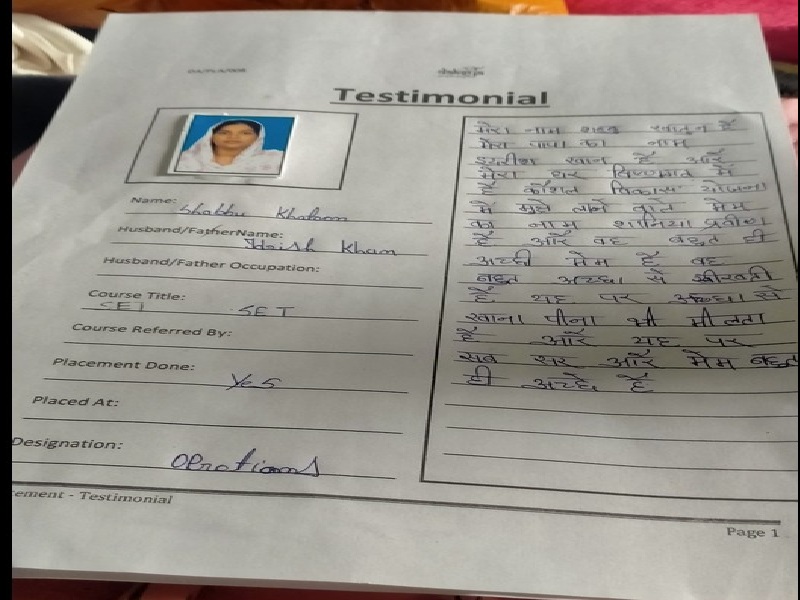 Testimonial
Name:
Shabbu Khatoon
Husband/FatherName:
Idrish Khan
Husband/Father Occupation:
Course Title:
SET SET
Course Referred By:
Placement Done:
Yes
Placed At:
Designation:
Oprational
ement - Testimonial
Page 1
मेरा नाम शब्बु खातुन हैं
मेरा पापा का नाम
इदरीश खान हैं और
मेरा घर में
हैं कौशल विकास योजना
में मुझे लाने वाले मेम
का नाम शानिया प्रवीण
हैं और वह बहुत ही
अच्छी मेम हैं वह
बहुत अच्छा से सीखती
हैं यह पर अच्छा से
खाना पीना भी मीलता
हैं और यह पर
सब सर और मेम बहुत
ही अच्छे हैं